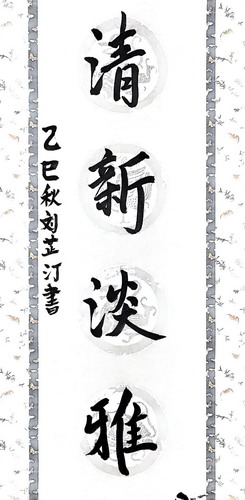 清新淡雅
乙巳秋刘芷汀書